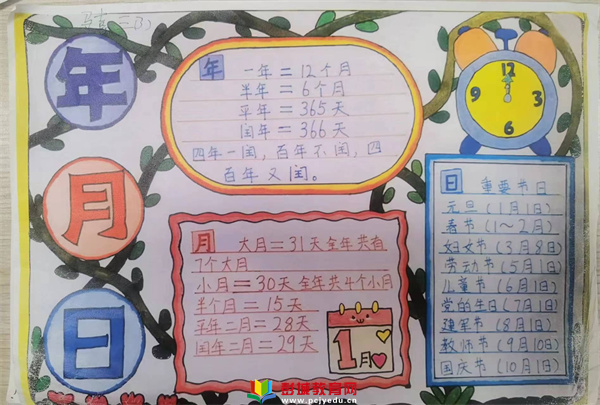 三(3)
年
月
日
年 一年=12个月
半年=6个月
平年=365天
闰年=366天
四年一闰,百年不闰,四
百年又闰。
12
3
6
9
月 大月=31天全年共有
7个大月
小月=30天全年共4个小月
半个月=15天
平年二月=28天
闰年二月=29天
1月
日 重要节日
元旦(1月1日)
春节(1~2月)
妇女节(3月8日)
劳动节(5月1日)
儿童节(6月1日)
党的生日(7月1日)
建军节(8月1日)
教师节(9月10日)
国庆节(10月1日)
彭捷教育网
www.pcjyedu.cn